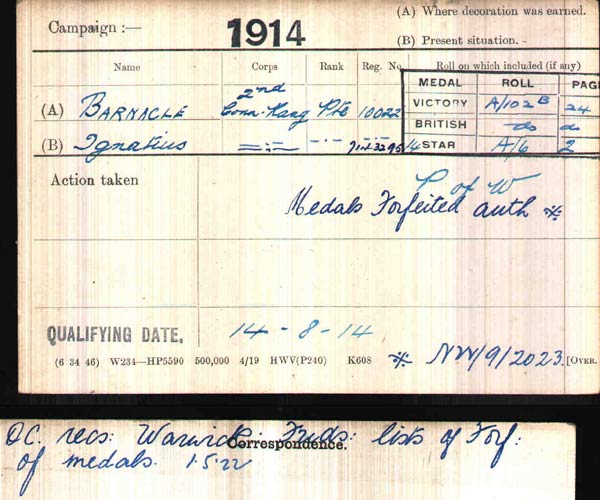 Campaign :— 1914
(A) Where decoration was earned.
(B) Present situation. -
Name Corps Rank Reg. No. Roll on which included (if any)
MEDAL ROLL PAGE
(A) BARNACLE 2nd Conn. Rang Pte 10022
VICTORY A/102 B 24
BRITISH do do
(B) Ignatius
STAR A/6 2
Action taken
P of W
Medals Forfeited auth ※
QUALIFYING DATE. 14 - 8 - 14
(6 34 46) W234—HP5590 500,000 4/19 HWV(P240) K608 ※ NW/9/2023. [OVER.
Correspondence.
O.C. recs: Warwick: lists of Forf:
of medals. 1.5.22